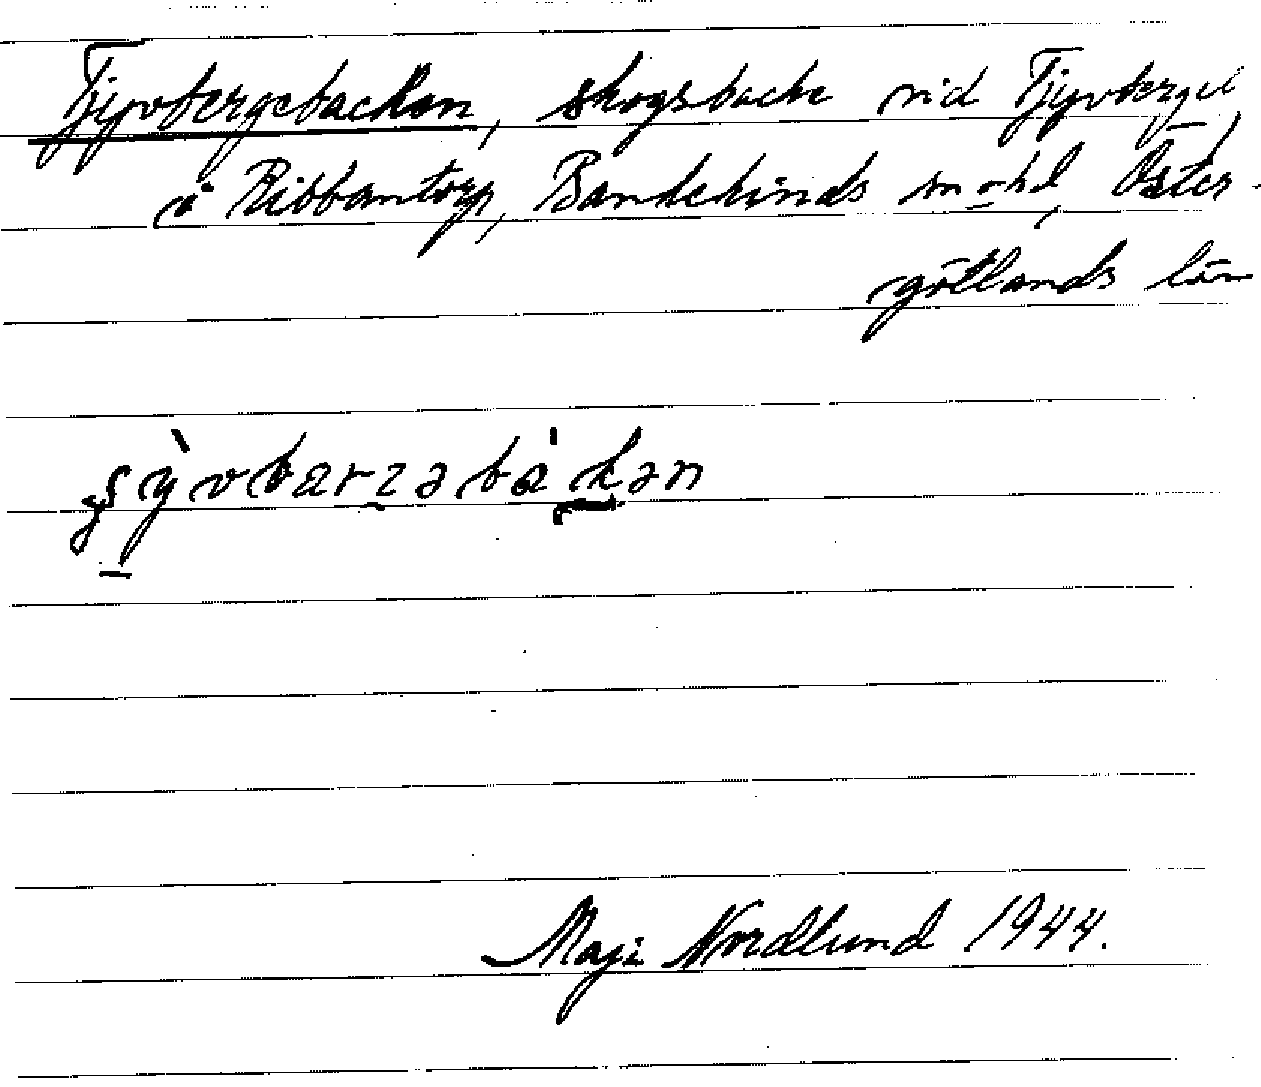 Tjyvbergebacken, skogsbacke vid Tjyvberget
å Ribbantorp, Bandekinds sn o hd, Öster-
götlands län
Maji Nordlund 1944.